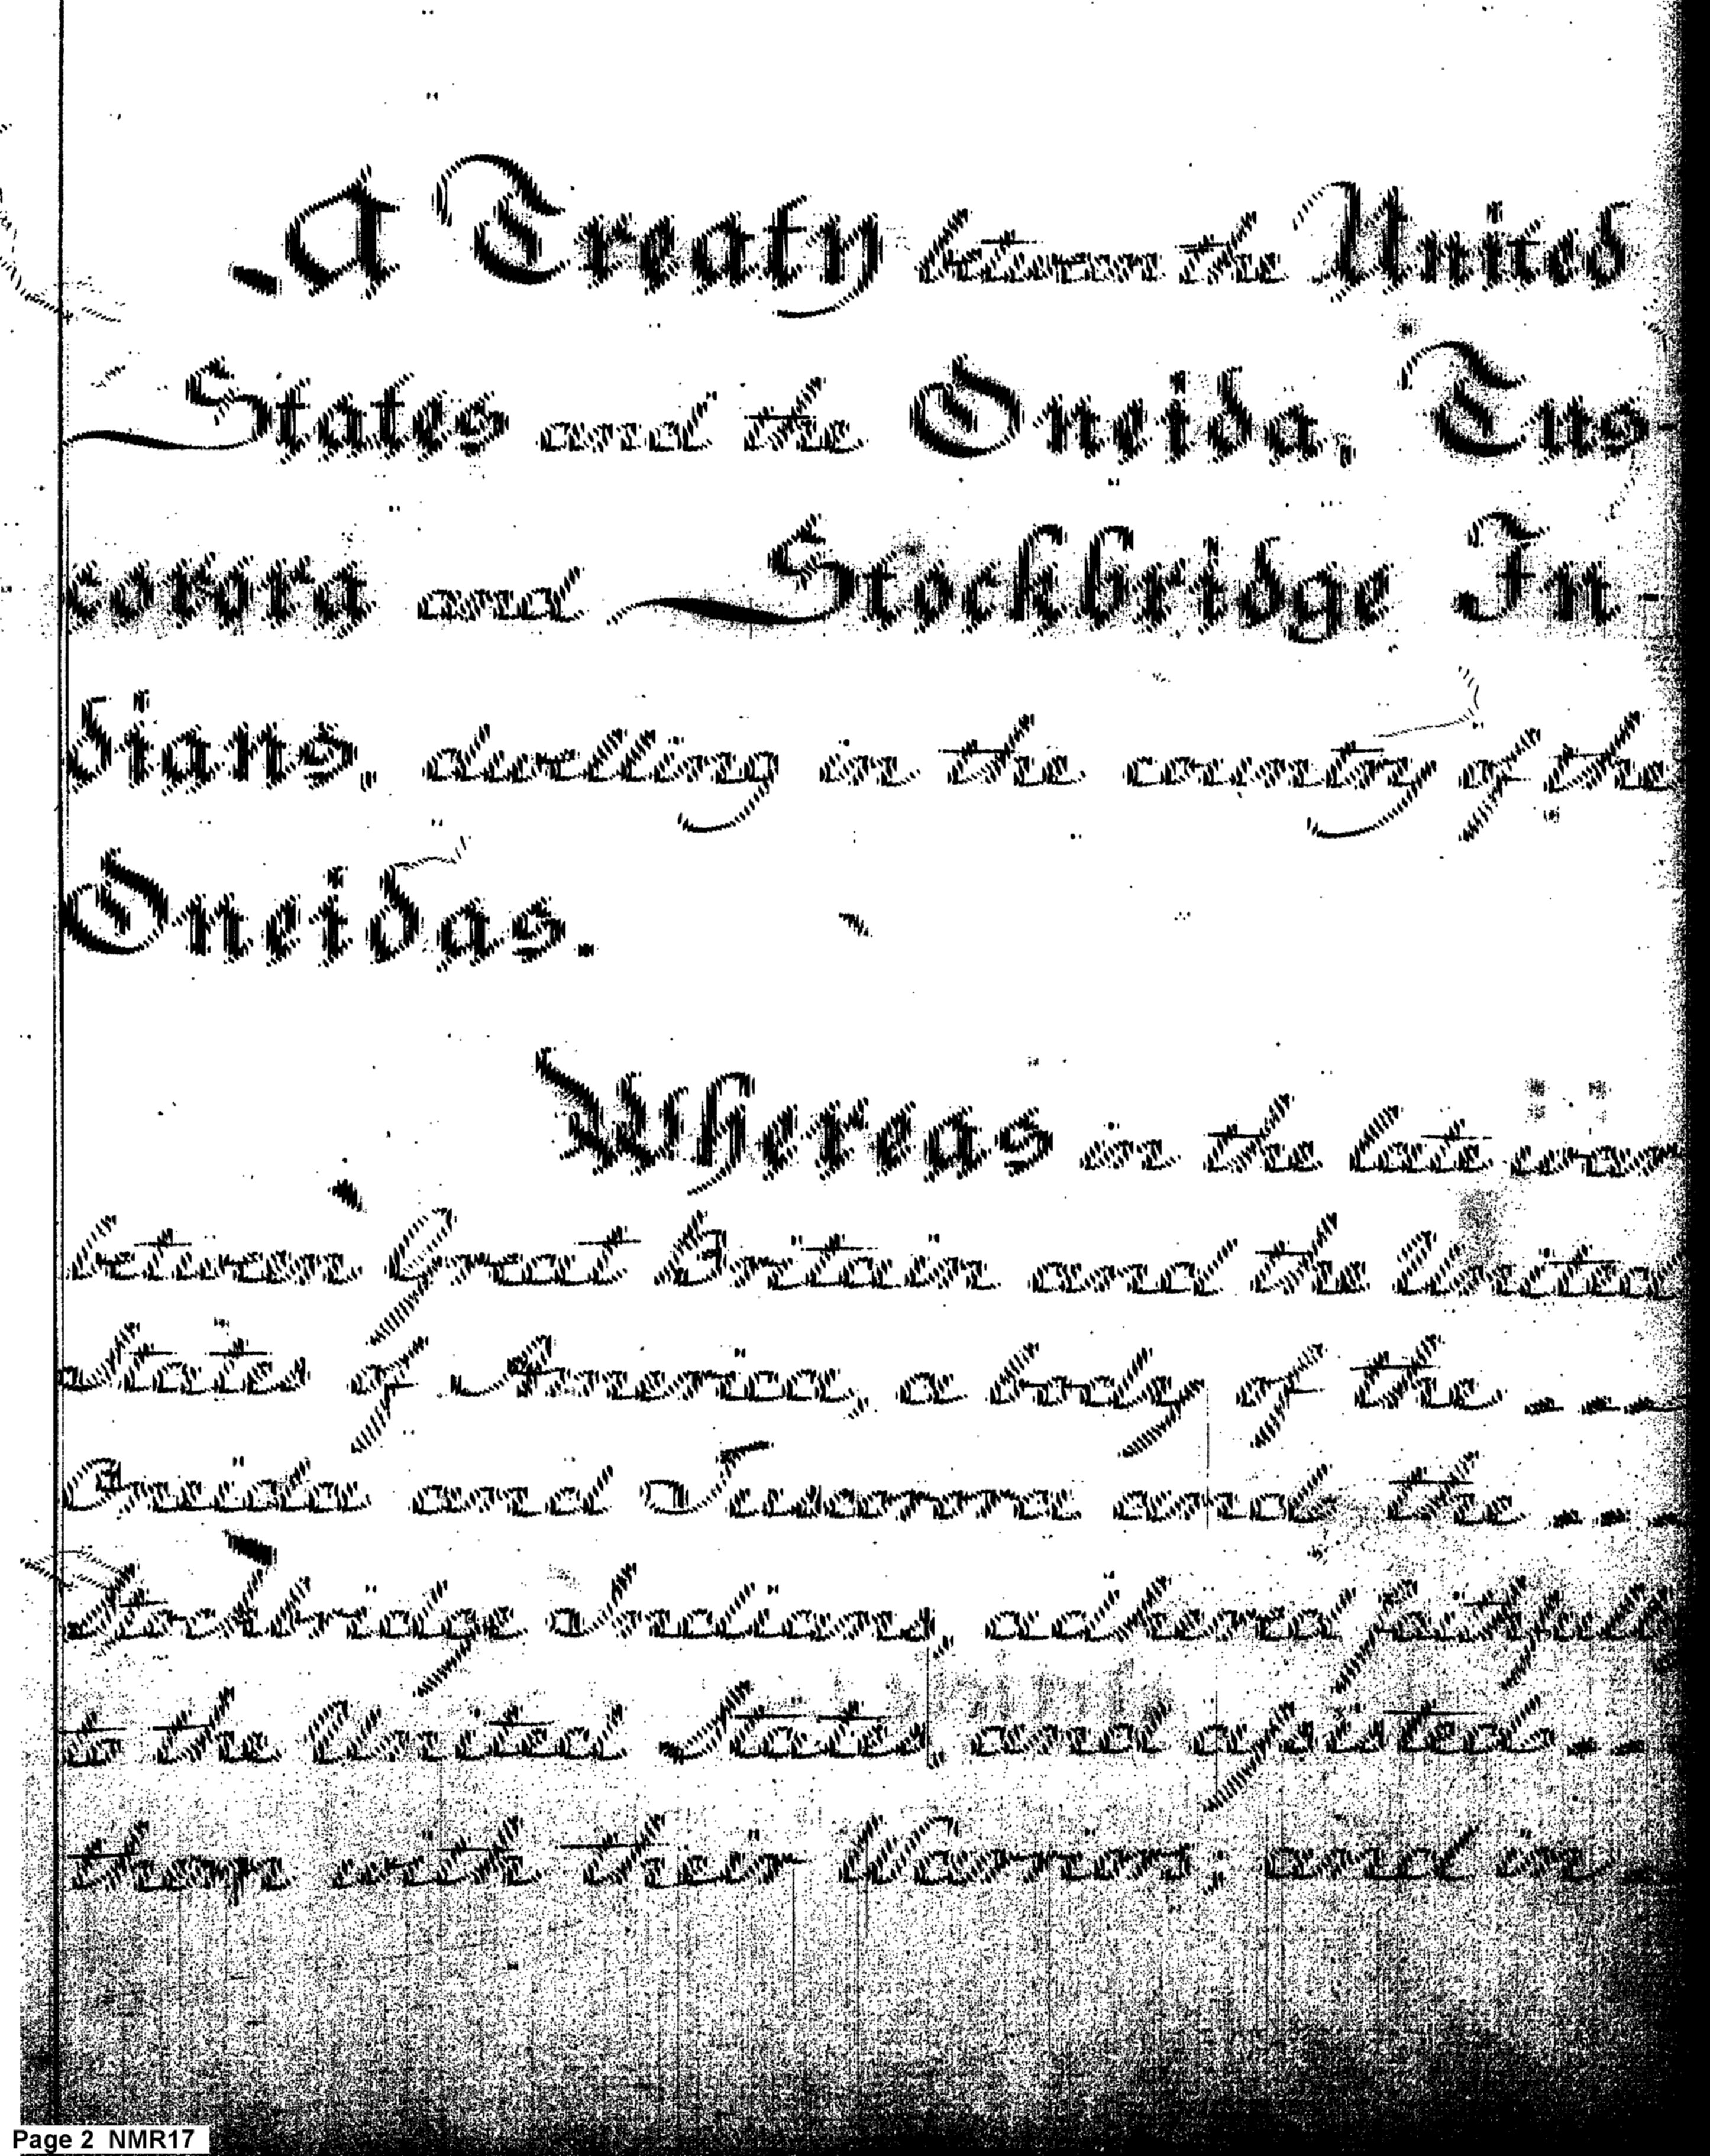 A Treaty between the United
States and the Oneida, Tus-
corora and Stockbridge In-
dians, dwelling in the country of the
Oneidas.
Whereas in the late war
between Great Britain and the United
States of America, a body of the ---
Oneida and Tuscorora and the ---
Stockbridge Indians, adhered faithfully
to the United States, and assisted --
them with their Warriors; and in -
Page 2 NMR17